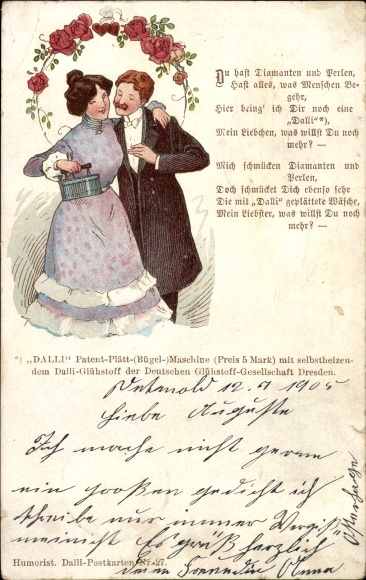 Du hast Diamanten und Perlen,
Hast alles, was Menschen Be-
gehr,
Hier bring' ich Dir noch eine
„Dalli"*),
Mein Liebchen, was willst Du noch
mehr? —
Mich schmücken Diamanten und
Perlen,
Doch schmücket Dich ebenso sehr
Die mit „Dalli" geplättete Wäsche,
Mein Liebster, was willst Du noch
mehr? —
*) „DALLI" Patent-Plätt-(Bügel-)Maschine (Preis 5 Mark) mit selbstheizen-
dem Dalli-Glühstoff der Deutschen Glühstoff-Gesellschaft Dresden.
Detmold 12. 1905
Liebe Auguste
Ich mache nicht gerne
ein großen gedicht ich
schreibe nur immer Vergiß
meinnicht Es grüß herzlich
Deine Freundin Anna
Humorist. Dalli-Postkarten Nr. 27.